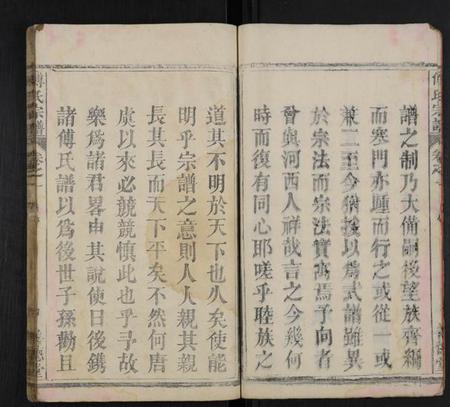 譜之制乃大備嗣後望族齊編
而寒門亦踵而行之或從一或
兼二至今猶援以為式譜雖異
於宗法而宗法實寓焉予向者
曾與河西人祥哉言之今幾何
時而復有同心耶嗟乎睦族之
道其不明於天下也久矣使能
明乎宗譜之意則人人親其親
長其長而天下平矣不然何唐
虞以來必競競慎此也乎予故
樂為諸君畧由其說使日後鐫
諸傅氏譜以為後世子孫勸且
傅氏宗譜
卷之一